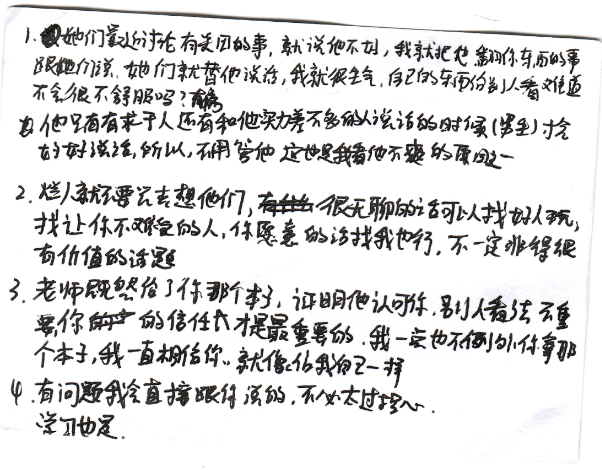 1.她们最近讨论有关因的事，就说他不对，我就把他翻你东西的事
跟她们说，她们就替他说话，我就很生气，自己的东西给别人看又难道
不会很不舒服吗？有病
他只有有求于人还有和他实力差不多的人说话的时候(男生)才会
好好说话，所以，不用管他 这也是我看他不爽的原因之一
2.烂人就不要去想他们，很无聊的话可以找好人玩，
找让你不难受的人，你愿意的话找我也行，不一定非得很
有价值的话题
3.老师既然给了你那个本子，证明他认可你，别人看法不重
要，你的信任才是最重要的，我一定也不例外，你拿那
个本子，我一直相信你。就像给我自己一样
4.有问题我会直接跟你说的，不必太过担心。
学习也是.